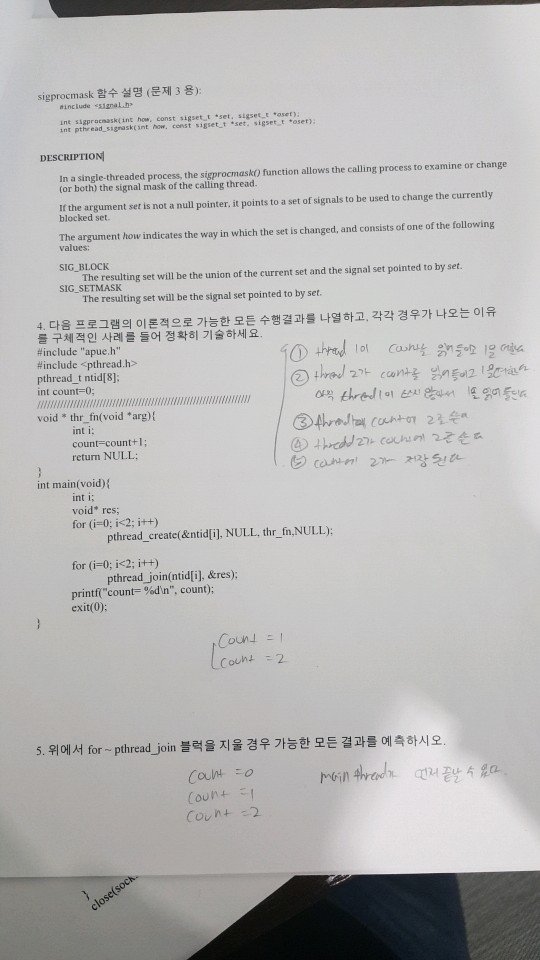 sigprocmask 함수 설명 (문제 3 용):
#include <signal.h>
int sigprocmask(int how, const sigset_t *set, sigset_t *oset);
int pthread_sigmask(int how, const sigset_t *set, sigset_t *oset);
DESCRIPTION
In a single-threaded process, the sigprocmask() function allows the calling process to examine or change
(or both) the signal mask of the calling thread.
If the argument set is not a null pointer, it points to a set of signals to be used to change the currently
blocked set.
The argument how indicates the way in which the set is changed, and consists of one of the following
values:
SIG_BLOCK
The resulting set will be the union of the current set and the signal set pointed to by set.
SIG_SETMASK
The resulting set will be the signal set pointed to by set.
4. 다음 프로그램의 이론적으로 가능한 모든 수행결과를 나열하고, 각각 경우가 나오는 이유
를 구체적인 사례를 들어 정확히 기술하세요.
#include "apue.h"
#include <pthread.h>
pthread_t ntid[8];
int count=0;
////////////////////////////////////////////////////////////////
void * thr_fn(void *arg){
int i;
count=count+1;
return NULL;
}
int main(void){
int i;
void* res;
for (i=0; i<2; i++)
pthread_create(&ntid[i], NULL, thr_fn,NULL);
for (i=0; i<2; i++)
pthread_join(ntid[i], &res);
printf("count= %d\n", count);
exit(0);
}
① thread 1이 count를 읽어들이고 1을
② thread 2가 count를 읽어들이고
아직 thread 1이 쓰지 않아서 읽어들인다
③ count에 2로
④ thread 2가 count에 2로 쓴다
⑤ count에 2가 저장된다
count = 1
count = 2
5. 위에서 for ~ pthread_join 블럭을 지울 경우 가능한 모든 결과를 예측하시오.
count = 0
count = 1
count = 2
main thread가 먼저 끝날 수 있다.
}
close(sock